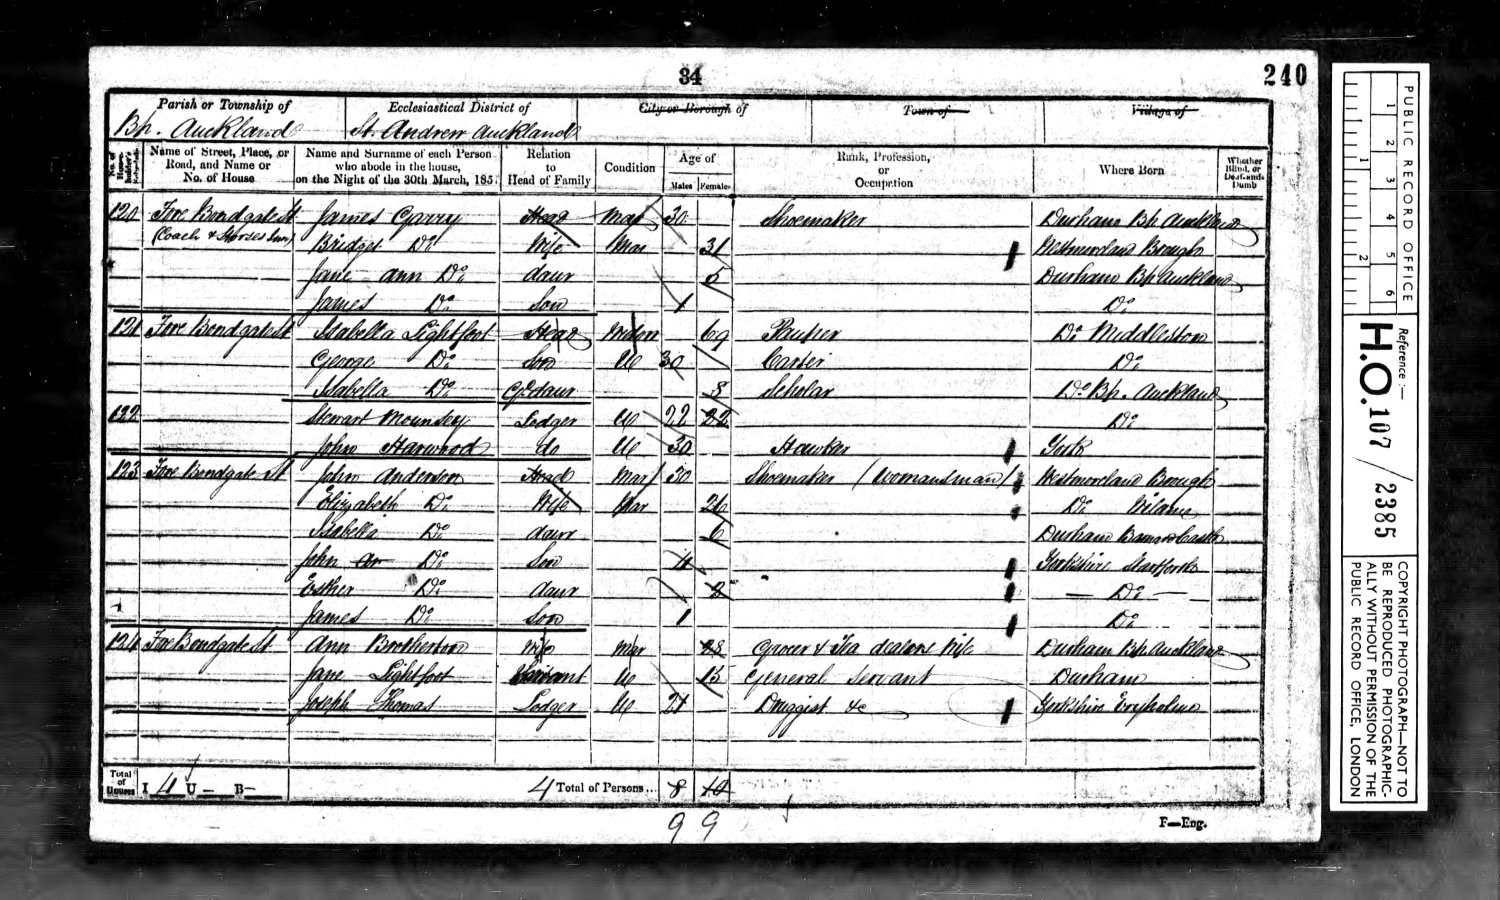 34
240
Parish or Township of Ecclesiastical District of City or Borough of Town of Village of
Bp. Auckland St. Andrew Auckland
Name of Street, Place, or Road, and Name or No. of House Name and Surname of each Person who abode in the house, on the Night of the 30th March, 185 Relation to Head of Family Condition Age of Males Females Rank, Profession, or Occupation Where Born Whether Blind, or Deaf-and-Dumb
120 Fore Bondgate St James Garry Head Mar 30 Shoemaker Durham Bp Auckland
(Coach & Horses Inn) Bridget Do Wife Mar 31 Westmorland Brough
Jane Ann Do daur 5 Durham Bp Auckland
James Do Son 1 Do
121 Fore Bondgate St Isabella Lightfoot Head Widow 69 Pauper Do Middleston
George Do Son U 30 Carter Do
Isabella Do Gd daur 8 Scholar Do Bp. Auckland
122 Stewart Mounsey Lodger U 22 22 Do
John Harwood do U 30 Hawker York
123 Fore Bondgate St John Anderson Head Mar 30 Shoemaker (Womansman) Westmoreland Brough
Elizabeth Do Wife Mar 26 Do
Isabella Do daur 6 Durham Barnard Castle
John Do Son 4 Yorkshire Startforth
Esther Do daur 2 Do
James Do Son 1 Do
124 Fore Bondgate St Ann Brotherton Wife Mar 28 Grocer & Tea dealers Wife Durham Bp Auckland
Jane Lightfoot Servant U 15 General Servant Durham
Joseph Thomas Lodger U 21 Druggist &c Yorkshire Eryholme
Total of Houses I 4 U - B - 4 Total of Persons... 8 10
9 9
F—Eng.
PUBLIC RECORD OFFICE
1 2 3 4 5 6
1 2
Reference :—
H.O. 107 / 2385
COPYRIGHT PHOTOGRAPH—NOT TO
BE REPRODUCED PHOTOGRAPHIC-
ALLY WITHOUT PERMISSION OF THE
PUBLIC RECORD OFFICE, LONDON